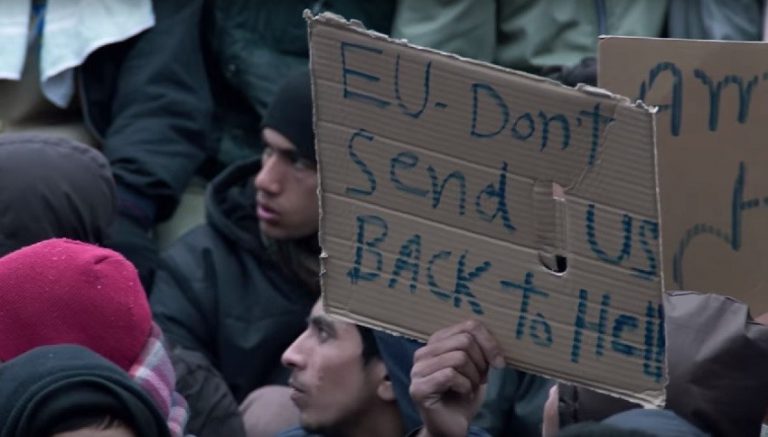 EU-Don't
Send US
BACK to Hell